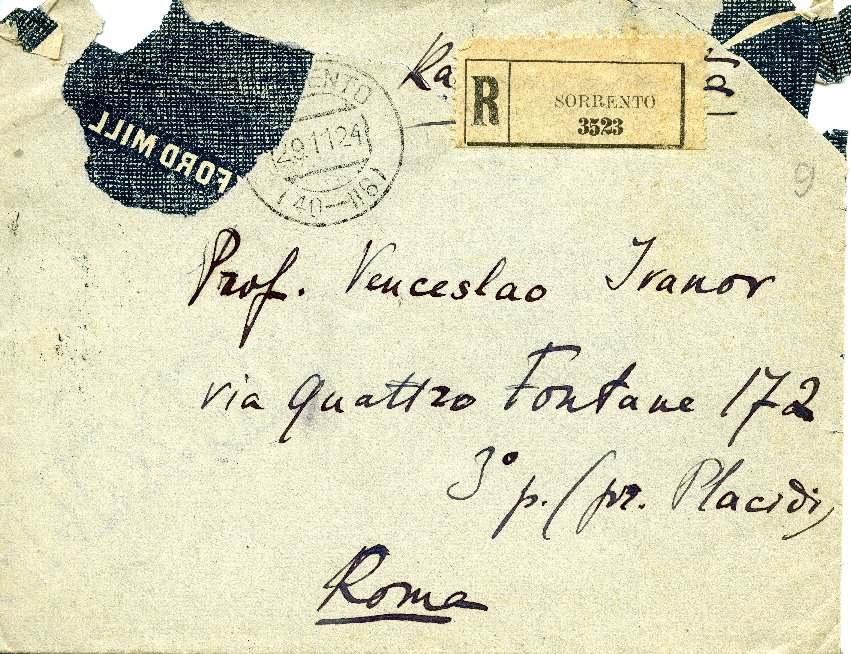 Ra
R SORRENTO
3523
ENTO
29.11.24
(40-116)
FORD MILL
9
Prof. Venceslao Ivanov
via Quattro Fontane 172
3° p. (pr. Placidi)
Roma